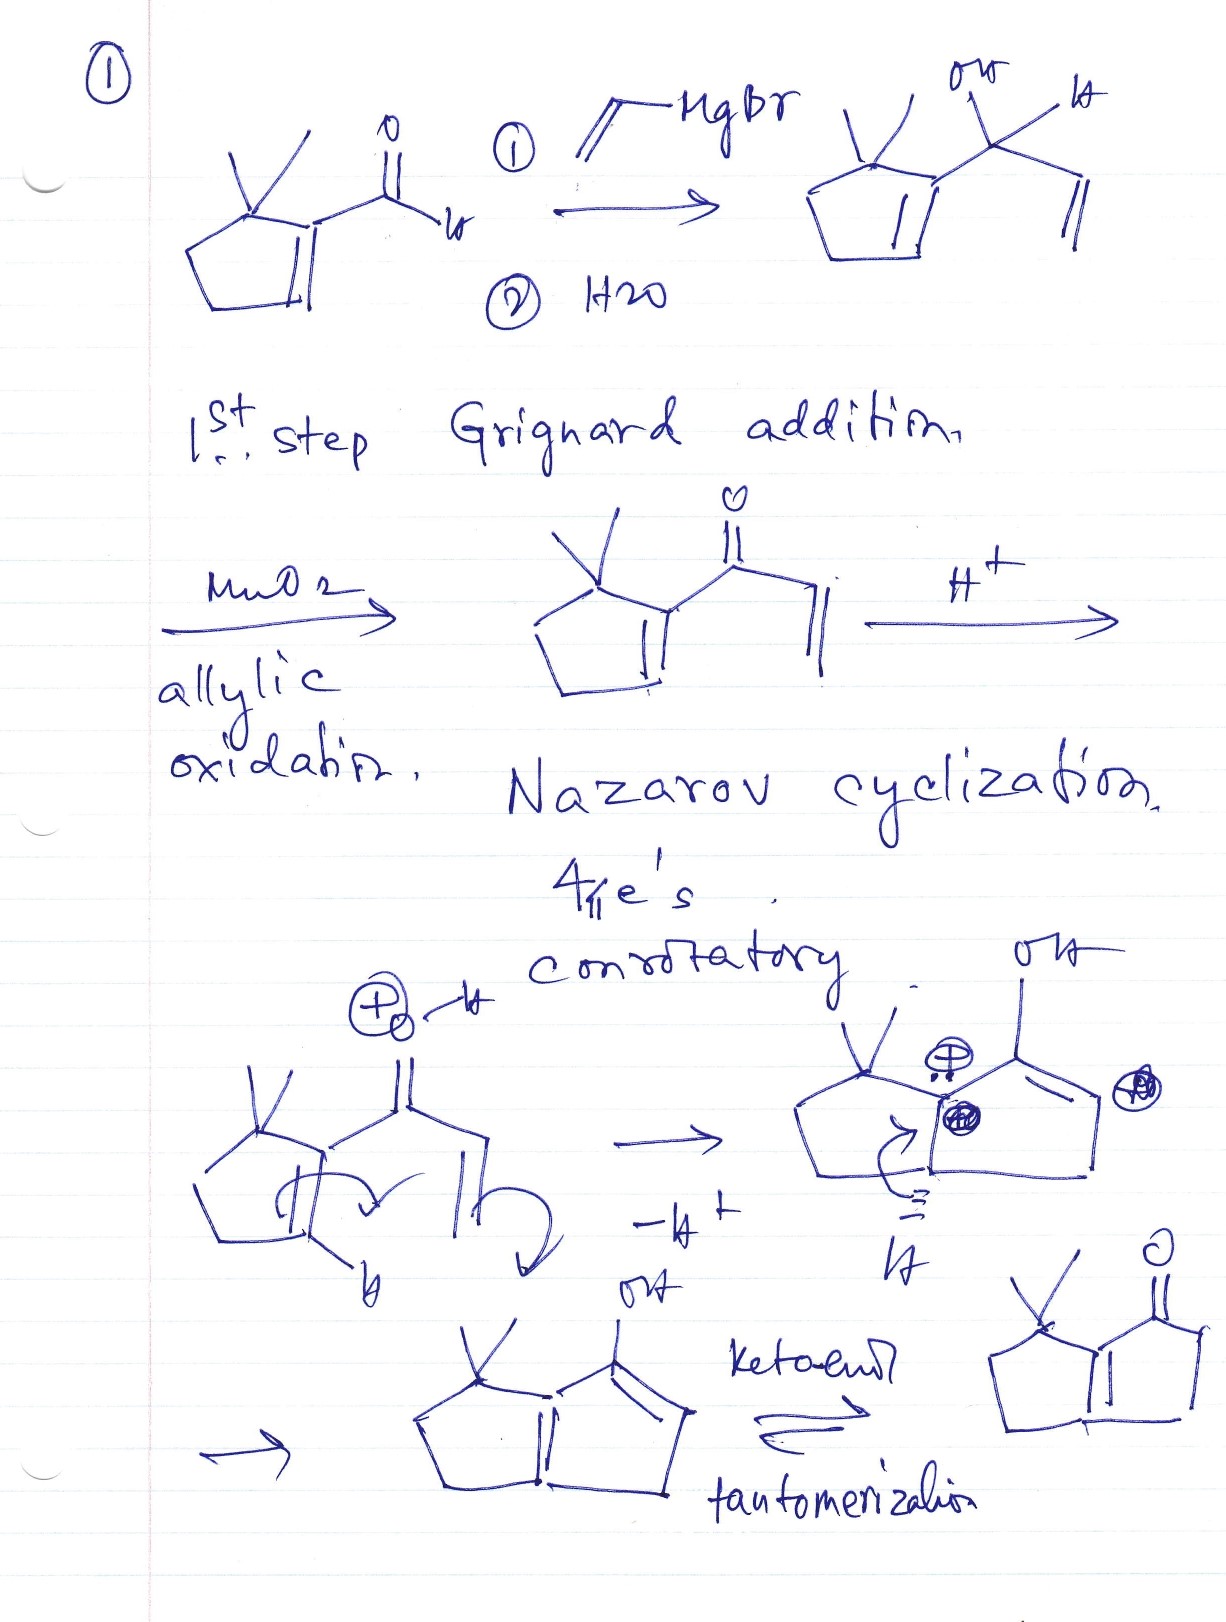 ①
O
H
① MgBr
② H2O
OH
H
1st step Grignard addition.
MnO2
allylic
oxidation.
O
H+
Nazarov cyclization.
4πe's
conrotatory
⊕
O-H
H
-H+
OH
⊕
H
OH
keto-enol
tautomerization
O